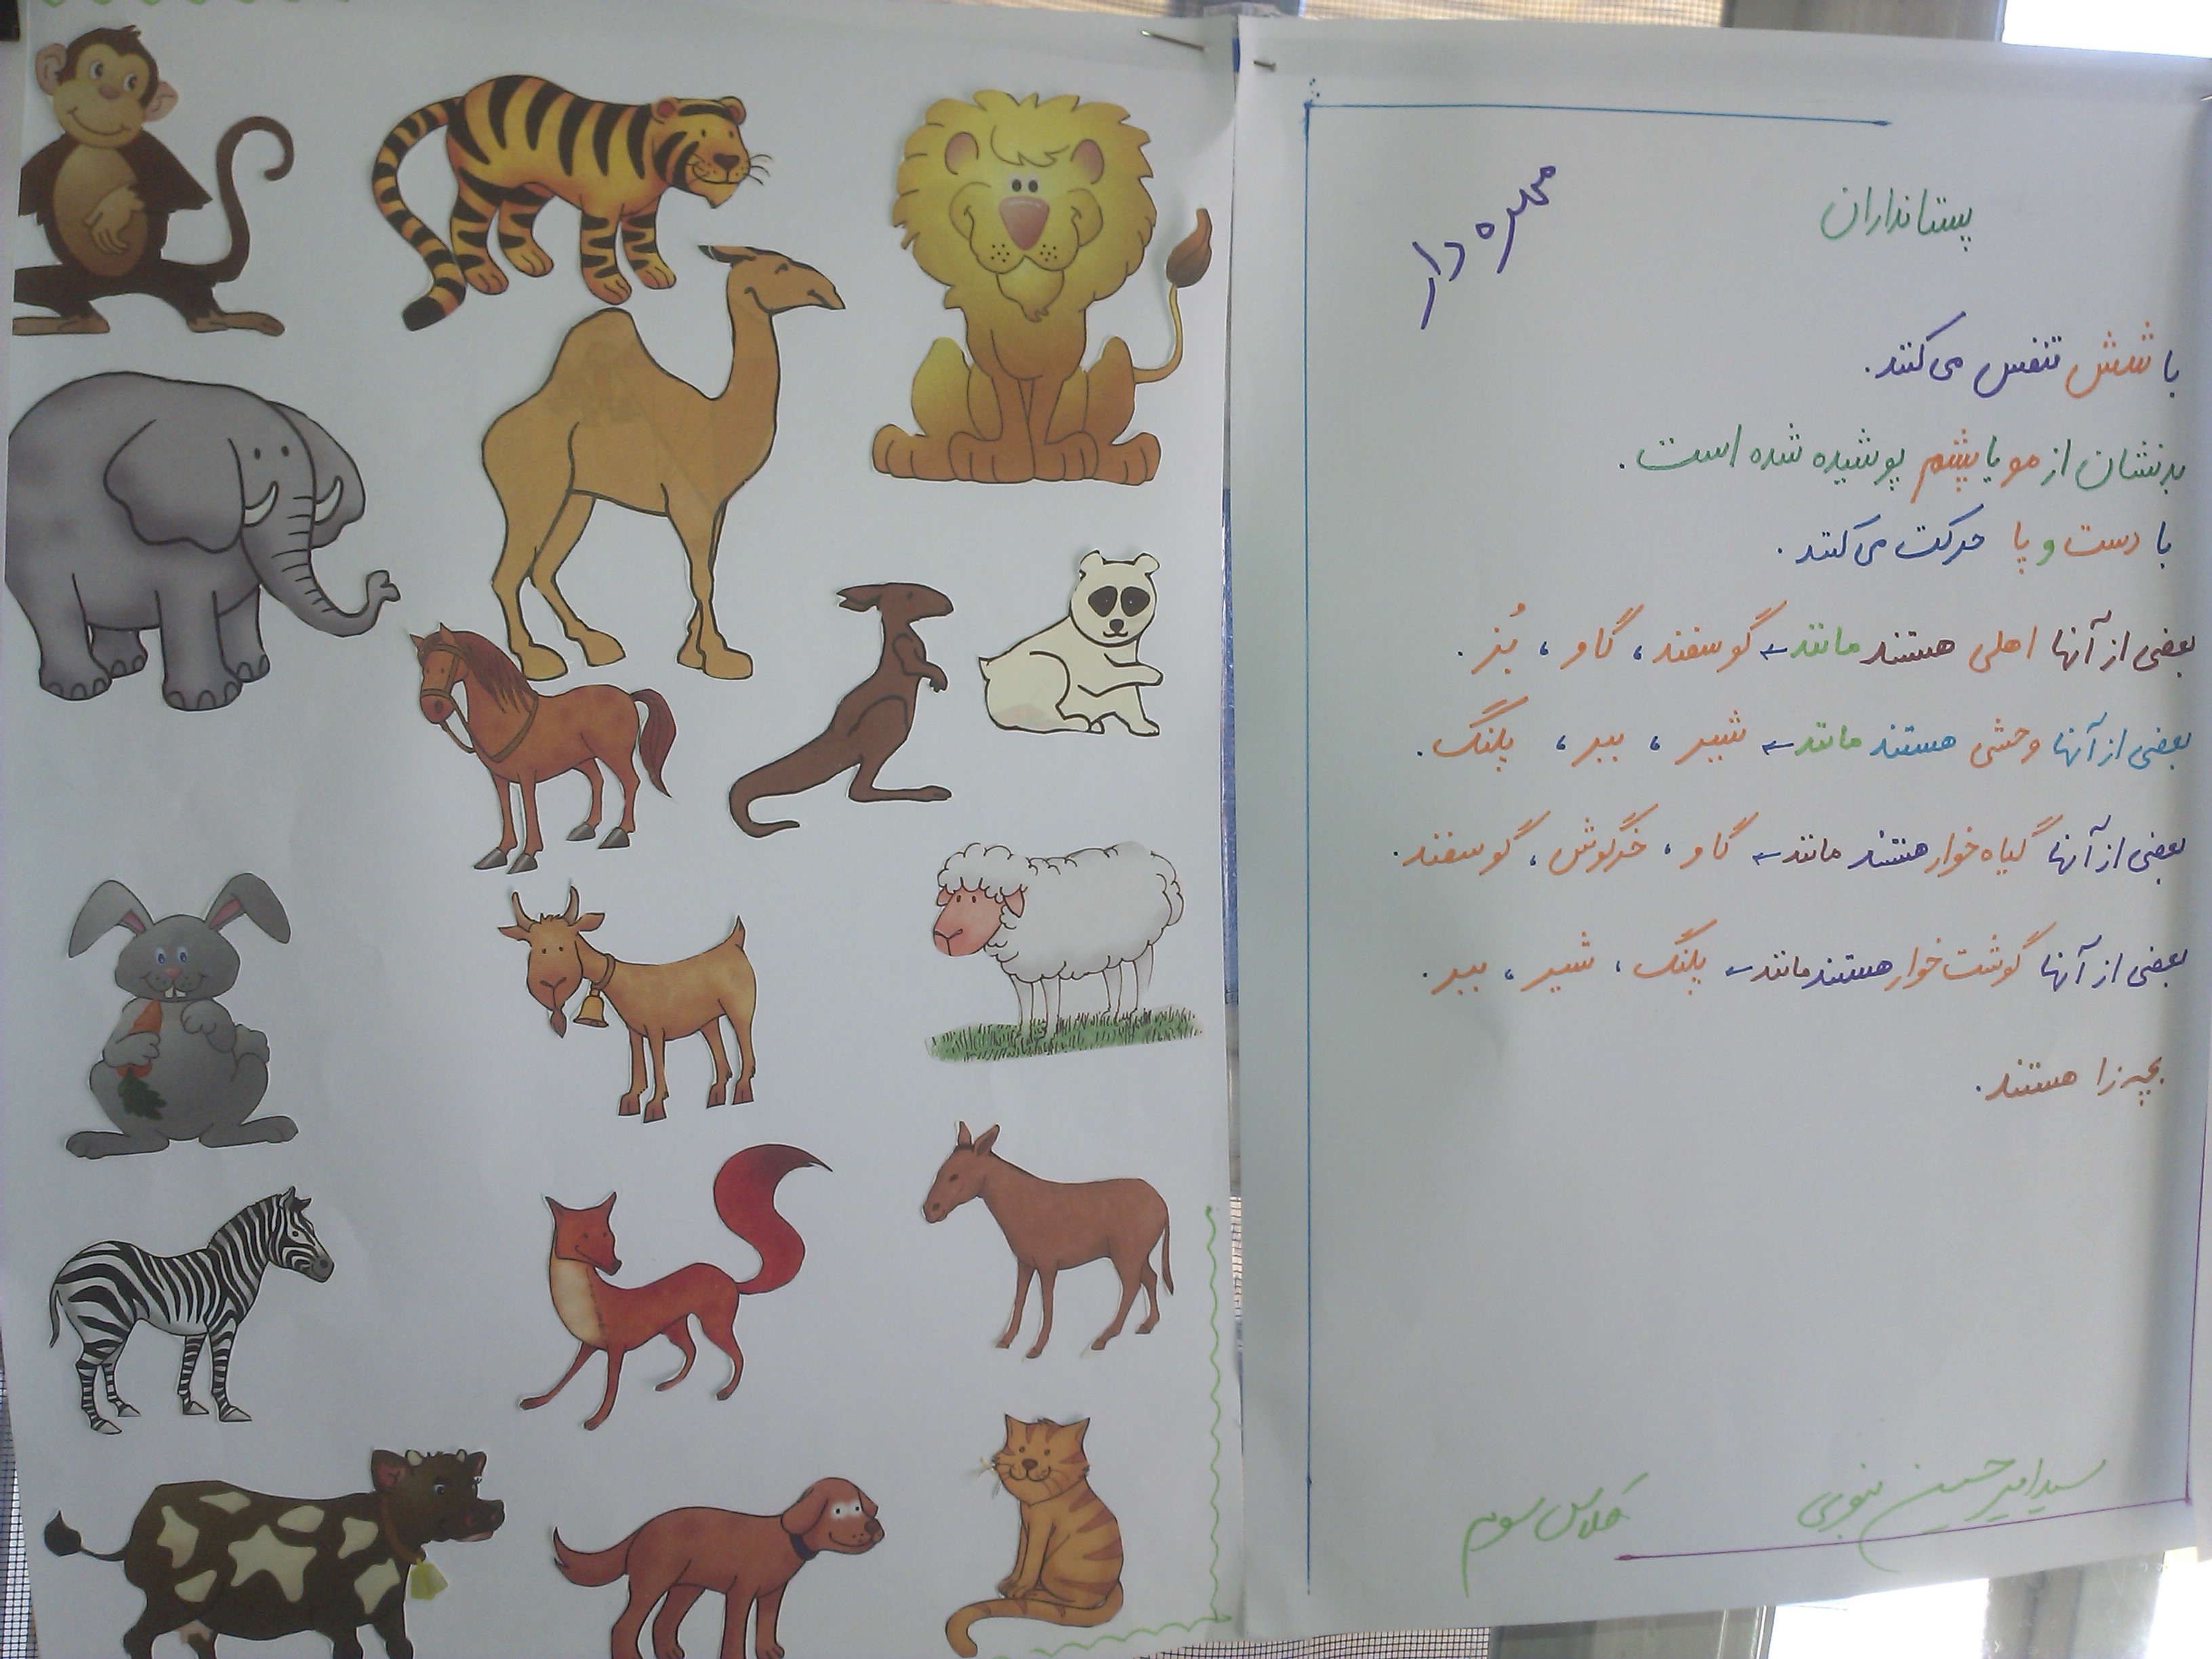 پستانداران
مهره دار
با شش تنفس می‌کنند.
بدنشان از مو یا پشم پوشیده شده است.
با دست و پا حرکت می‌کنند.
بعضی از آنها اهلی هستند مانند ← گوسفند، گاو، بُز.
بعضی از آنها وحشی هستند مانند ← شیر، ببر، پلنگ.
بعضی از آنها گیاه خوار هستند مانند ← گاو، خرگوش، گوسفند.
بعضی از آنها گوشت خوار هستند مانند ← پلنگ، شیر، ببر.
بچه زا هستند.
سید امیر حسین نبوی
کلاس سوم